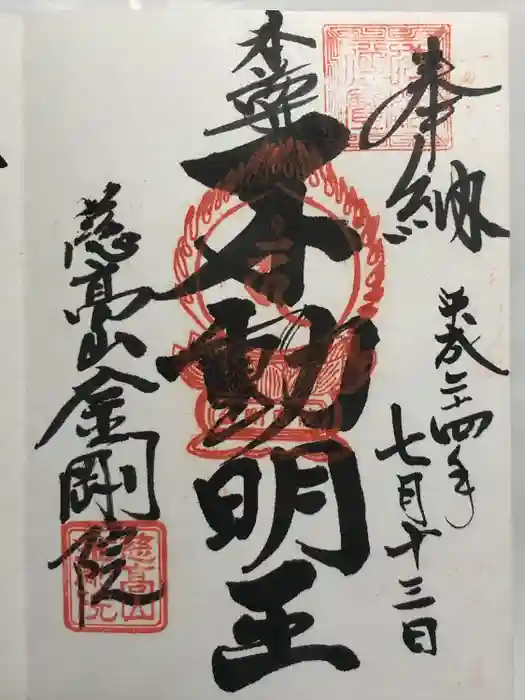 奉納
平成二十四年
七月十三日
本尊
不動明王
慈高山金剛院
慈高山
金剛院